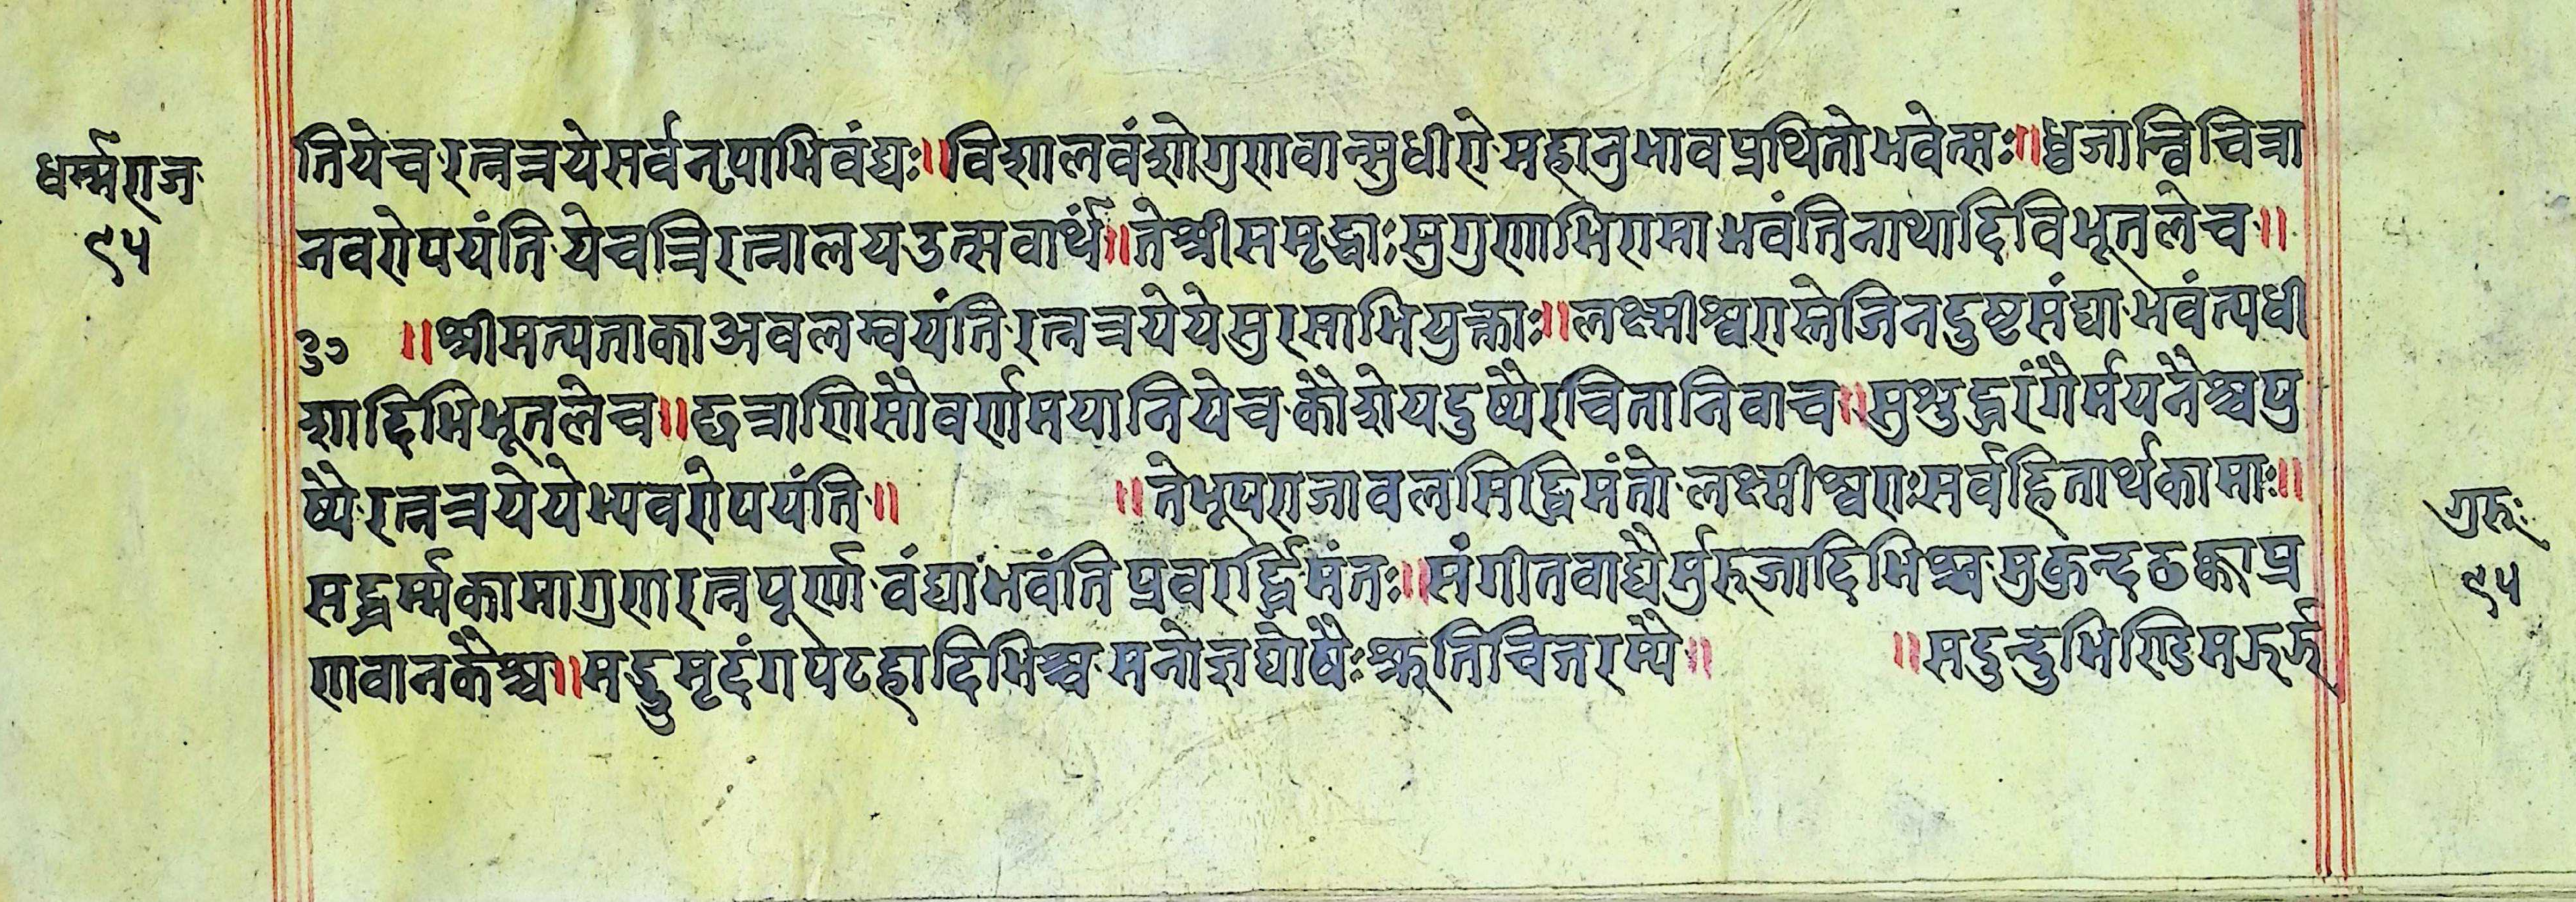 धर्म्मराज
९५
तियेचरत्नत्रयेसर्वनृपाभिवंद्यः॥विशालवंशोगुणवान्सुधीरोमहानुभावप्रथितोभवेत्सः॥ध्वजान्विचित्रा
नवरोपयंतियेचत्रिरत्नालयउत्सवार्थं॥तेश्रीसमृद्धाःसुगुणाभिरामाभवंतिनाथादिविभूतलेच॥
३० ॥श्रीमत्पताकाअवलम्वयंतिरत्नत्रयेयेसुरसाभियुक्ताः॥लक्ष्मीश्वरास्तेजिनदुष्टसंघाभवंत्यधी
शादिभिभूतलेच॥छत्राणिसौवर्णमयानियेचकौशेयदुष्यैरचितानिवाच॥सुशुद्धरंगैर्मयनैश्चपु
ष्पैरत्नत्रयेयेभ्यवरोपयंति॥ ॥तेभूपराजावलसिद्धिमंतोलक्ष्मीश्वराःसर्वहितार्थकामाः॥
सद्धर्म्मकामागुणरत्नपूर्णावंद्याभवंतिप्रवरर्द्धिमंतः॥संगीतवाद्यैर्मुरूजादिभिश्चमुकुन्दठक्काप्र
णवानकैश्च॥मद्गुमृदंगपटहादिभिश्चमनोज्ञघोषैःश्रुतिचित्तरम्यै॥ ॥सदुन्दुभिण्डिमझर्झ
गुरूः
९५